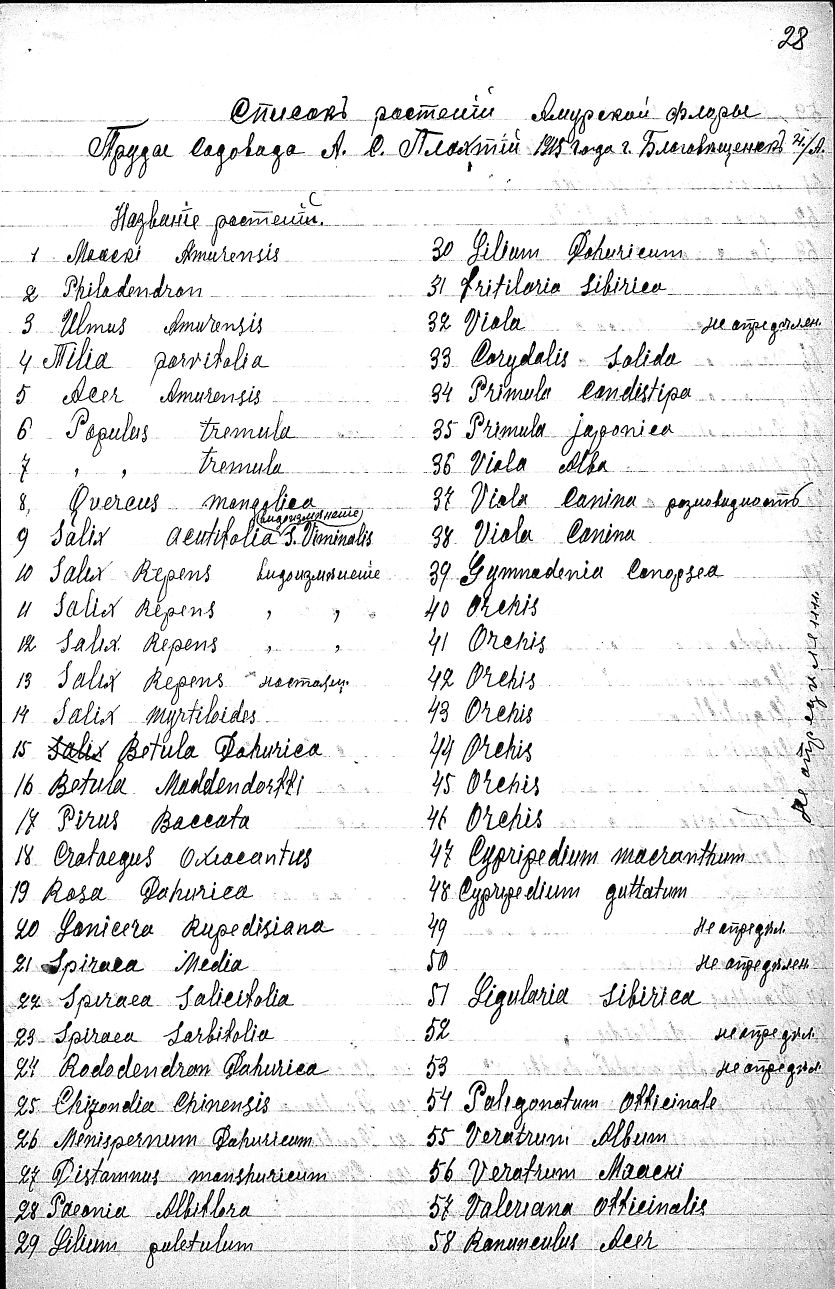 28
Списокъ растенiй Амурской флоры
Труды Садовода А. С. Плахтiй 1915 года г. Благовѣщенскъ н/А.
Названiе растенiй.
1 Maacki Amurensis
2 Philodendron
3 Ulmus Amurensis
4 Tilia parvifolia
5 Acer Amurensis
6 Populus tremula
7 " " tremula
8, Qvercus mongolica
видоизмѣненiе
9 Salix acutifolia S. Viminalis
10 Salix Repens видоизмѣненiе
11 Salix Repens " "
12 Salix Repens " "
13 Salix Repens настоящ.
14 Salix myrtiloides
15 Salix Betula Dahurica
16 Betula Maddendorffi
17 Pirus Baccata
18 Crataegus Oxiacantus
19 Rosa Dahurica
20 Lonicera Rupedisiana
21 Spiraea Media
22 Spiraea Salicifolia
23 Spiraea Sorbifolia
24 Rododendron Dahurica
25 Chizondia Chinensis
26 Menispernum Dahuricum
27 Distamnus manshuricum
28 Paeonia Albiflora
29 Lilium puletulum
30 Lilium Dahuricum
31 fritilaria Sibirica
32 Viola не опредѣлен.
33 Corydalis Solida
34 Primula Candistipa
35 Primula japonica
36 Viola Alba
37 Viola Canina розновидность
38 Viola Canina
39 Gymnadenia Conopsea
40 Orchis
41 Orchis
42 Orchis
43 Orchis
44 Orchis
45 Orchis
46 Orchis
не опредѣленн.
47 Cypripedium macranthum
48 Cypripedium guttatum
49 не опредѣл.
50 не опредѣлен
51 Ligularia Sibirica
52 не опредѣл.
53 не опредѣл
54 Poligonatum Officinale
55 Veratrum Album
56 Veratrum Maacki
57 Valeriana Officinalis
58 Ranunculus Acer